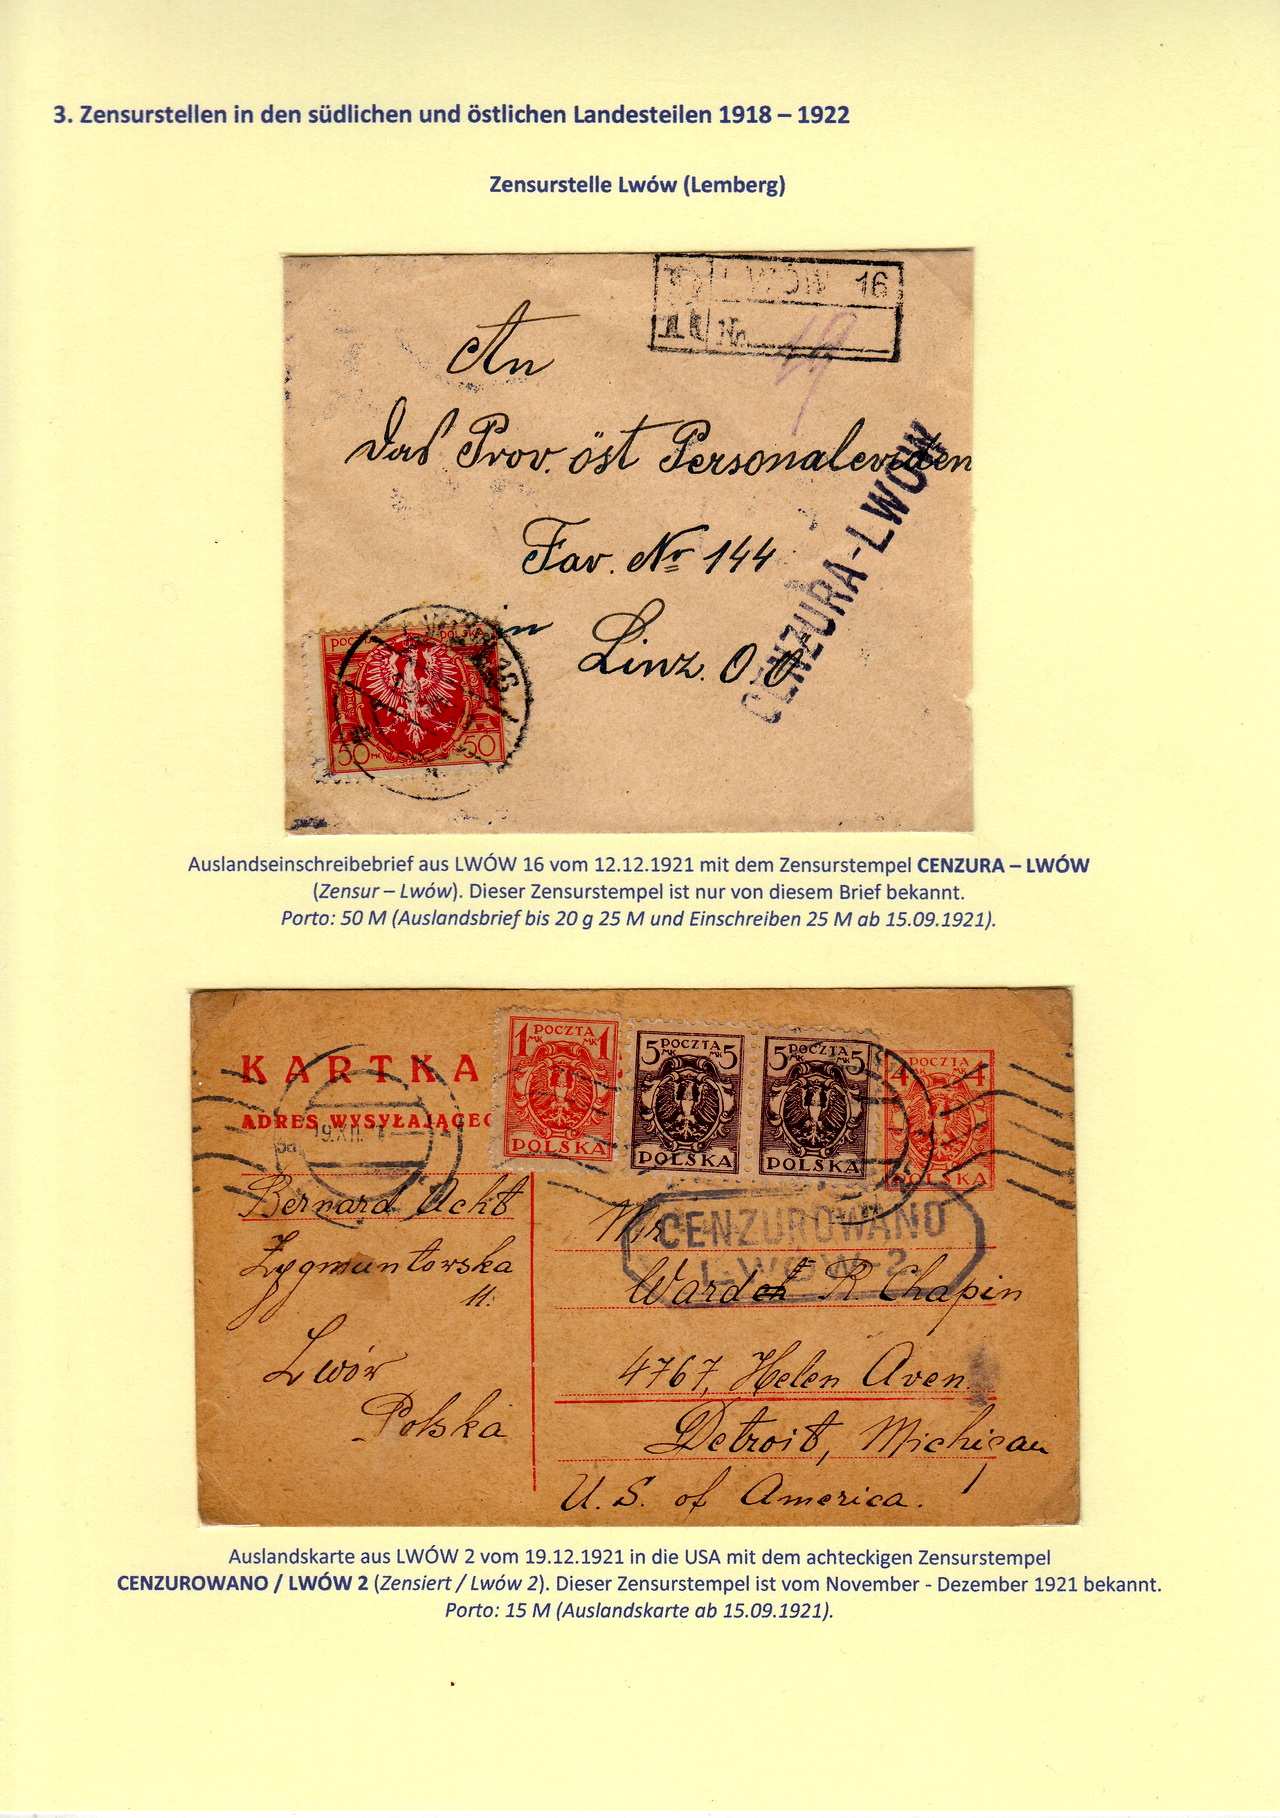 3. Zensurstellen in den südlichen und östlichen Landesteilen 1918 – 1922
Zensurstelle Lwów (Lemberg)
R LWÓW 16
Nr. 19
An
das Prov. öst Personaleviden
Fav. Nr 144
in Linz. O Ö
CENZURA-LWÓW
POCZTA POLSKA
50 MK MK 50
Auslandseinschreibebrief aus LWÓW 16 vom 12.12.1921 mit dem Zensurstempel CENZURA – LWÓW
(Zensur – Lwów). Dieser Zensurstempel ist nur von diesem Brief bekannt.
Porto: 50 M (Auslandsbrief bis 20 g 25 M und Einschreiben 25 M ab 15.09.1921).
KARTKA
ADRES WYSYŁAJĄCEG
19.XII.
1 POCZTA 1
MK MK
POLSKA
5 POCZTA 5
MK MK
POLSKA
5 POCZTA 5
MK MK
POLSKA
4 POCZTA 4
MK MK
POLSKA
Bernard Ackt
Zygmuntowska
11.
Lwów
Polska
CENZUROWANO
LWÓW-2
Mr
Ward R Chapin
4767, Helen Aven.
Detroit, Michigan
U. S. of America. !
Auslandskarte aus LWÓW 2 vom 19.12.1921 in die USA mit dem achteckigen Zensurstempel
CENZUROWANO / LWÓW 2 (Zensiert / Lwów 2). Dieser Zensurstempel ist vom November - Dezember 1921 bekannt.
Porto: 15 M (Auslandskarte ab 15.09.1921).